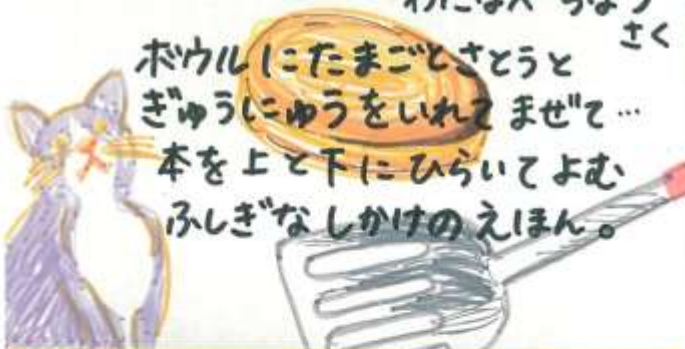 さく
ボウルにたまごとさとうと
ぎゅうにゅうをいれてまぜて…
本を上と下にひらいてよむ
ふしぎなしかけのえほん。